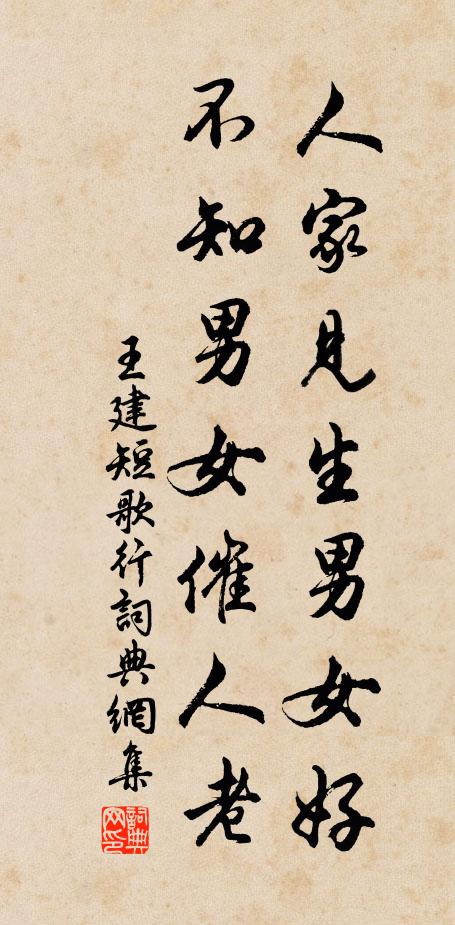 人家見生男女好
不知男女催人老
王建短歌行詞典網集
詞典网印